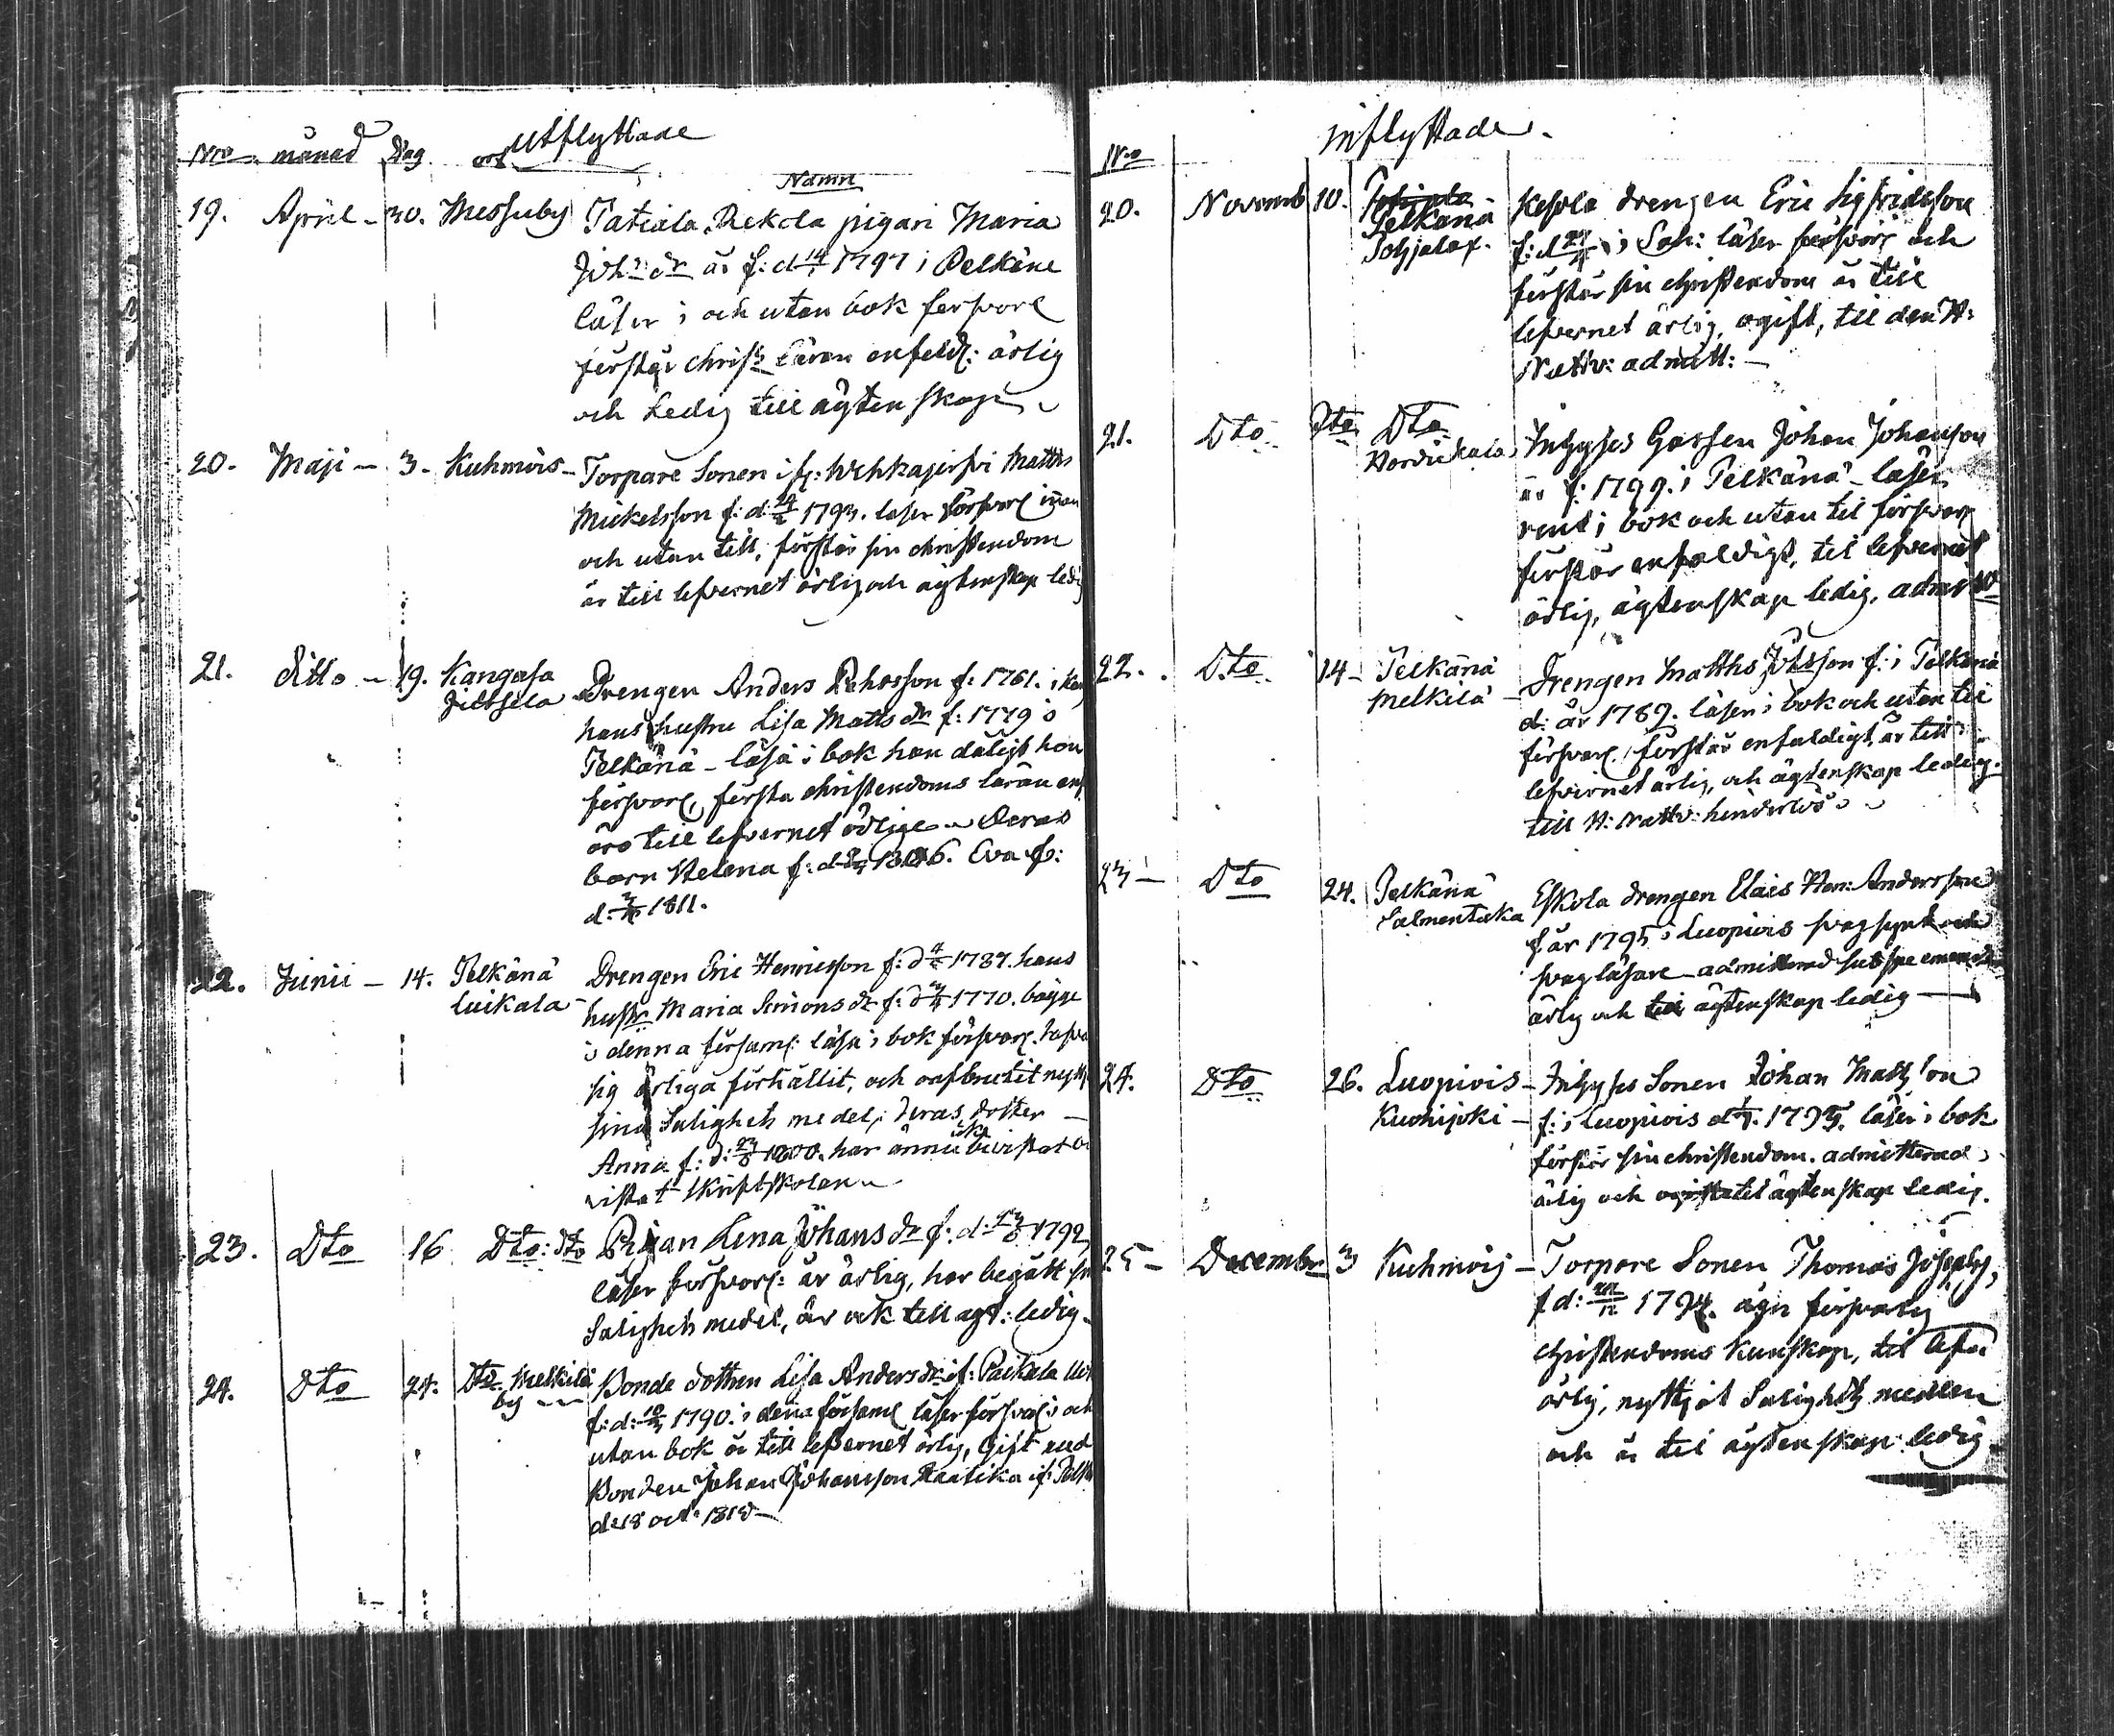 Utflyttade
No månad Dag ort
Namn
19. April - 30. Messuby Tatiala Rekola pigan Maria
Joh:s dr är f: d 14/1 1797 i Pelkäne
läser i och utan bok försvarl
förstår christ: läran enfeld: ärlig
och Ledig till ägtenskap
20. Maji - 3. Kuhmois - Torpare Sonen ifr: Wehkajerfvi Matths
Mickelsson f: d: 24/2 1793. läser försvarl innan
och utan till, förstår sin christendom
är till lefvernet ärlig och ägtenskap ledig
21. ditto - 19. Kangasa Drengen Anders f: 1761. i
hans hustru Lisa Matts dr f: 1779 i
Pelkänä - läsa i bok han däligt hon
försvarl, förstå christendoms läran enf
äro till lefvernet ärlige - Deras
barn Helena f: d 1806. Eva f:
d: 1811.
22. Junii - 14. Pelkänä Drengen Eric Henricsson f: d 1787. hans
Luikala - hustr Maria Simons dr f: d 1770. bägge
i denna församl: läsa i bok försvarl. hafva
sig ärliga förhållit, och oafbrutit nytt
sina Salighets medel, deras dotter
Anna f: d: 1800. har ännu icke bivistat
vistat skriftskolan
23. Dto 16 Dto: dto Pigan Lena Johans dr f: d: 1792
läser försvarl: är ärlig, har begått sin
Salighets medel, är ock till ägt: ledig.
24. Dto 24. Dto Melkilä Bonde dottren Lisa Anders dr if: Paikala
by f: d: 10/3 1790. i denna församl läser försvarl i och
utan bok är till lefvernet ärlig, Gift med
Bonden Johan Johansson Raatika if: Pelk
d: 18 oct: 1812
Inflyttade.
No
20. Novemb 10. Pelkänä Kesola drengen Eric Sigfridsson
Pohjalax. f: d i Sah: läser försvarl och
förstår sin christendom är till
lefvernet ärlig, ogift, till den H:
Nattv: admitt: -
21. Dto Dto Dto Inhyses Gossen Johan Johansson
är f: 1799. i Pelkänä - läser
rent i bok och utan til försvarl
förstår enfaldigt, til lefvernet
ärlig, ägtenskap ledig, admitt
22. Dto. 14 - Pelkänä Drengen Matths Johsson f: i Pelkänä
Melkilä - d: år 1789. läser i bok och utan till
försvarl, förstår enfaldigt, är till
lefvernet ärlig, och ägtenskap ledig.
till H: Nattv: hinderlös
23 - Dto 24. Pelkänä Eskola drengen Elias Hen: Andersson
Salmentaka f år 1795 i Luopiois svagsynt och
svag läsare admitterad sub spe emend
ärlig och till ägtenskap ledig -
24. Dto 26. Luopiois - Inhyses Sonen Johan Matsson
Kuohijoki - f: i Luopiois d 1795. läser i bok
förstår sin christendom. admitterad
ärlig och til ägtenskap ledig.
25 - December 3 Kuhmois - Torpare Sonen Thomas Josephs,
f d: 1794. äger försvarlig
christendoms kunskap, til lefv:
ärlig, nyttjat Salighets medlen
och är til ägtenskap ledig.